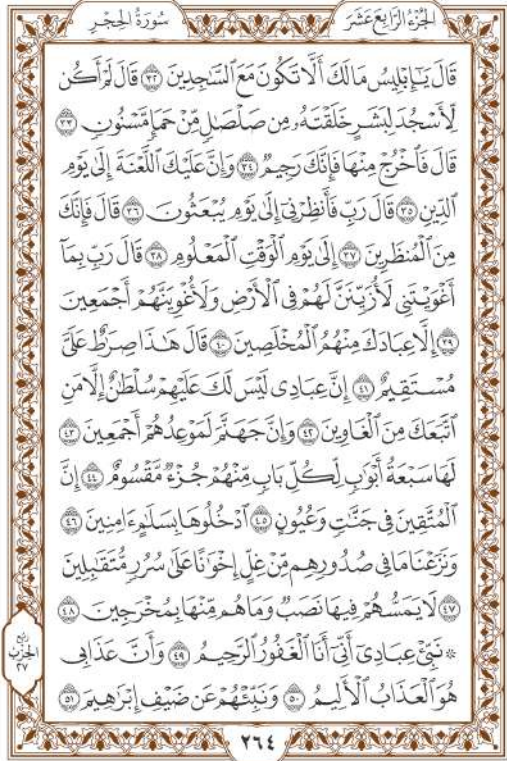 الجُزْءُ الرَّابِعَ عَشَرَ
سُورَةُ الحِجْرِ
قَالَ يَٰٓإِبۡلِيسُ مَا لَكَ أَلَّا تَكُونَ مَعَ ٱلسَّٰجِدِينَ ٣٢ قَالَ لَمۡ أَكُن
لِّأَسۡجُدَ لِبَشَرٍ خَلَقۡتَهُۥ مِن صَلۡصَٰلٖ مِّنۡ حَمَإٖ مَّسۡنُونٖ ٣٣
قَالَ فَٱخۡرُجۡ مِنۡهَا فَإِنَّكَ رَجِيمٞ ٣٤ وَإِنَّ عَلَيۡكَ ٱللَّعۡنَةَ إِلَىٰ يَوۡمِ
ٱلدِّينِ ٣٥ قَالَ رَبِّ فَأَنظِرۡنِيٓ إِلَىٰ يَوۡمِ يُبۡعَثُونَ ٣٦ قَالَ فَإِنَّكَ
مِنَ ٱلۡمُنظَرِينَ ٣٧ إِلَىٰ يَوۡمِ ٱلۡوَقۡتِ ٱلۡمَعۡلُومِ ٣٨ قَالَ رَبِّ بِمَآ
أَغۡوَيۡتَنِي لَأُزَيِّنَنَّ لَهُمۡ فِي ٱلۡأَرۡضِ وَلَأُغۡوِيَنَّهُمۡ أَجۡمَعِينَ
٣٩ إِلَّا عِبَادَكَ مِنۡهُمُ ٱلۡمُخۡلَصِينَ ٤٠ قَالَ هَٰذَا صِرَٰطٌ عَلَيَّ
مُسۡتَقِيمٌ ٤١ إِنَّ عِبَادِي لَيۡسَ لَكَ عَلَيۡهِمۡ سُلۡطَٰنٌ إِلَّا مَنِ
ٱتَّبَعَكَ مِنَ ٱلۡغَاوِينَ ٤٢ وَإِنَّ جَهَنَّمَ لَمَوۡعِدُهُمۡ أَجۡمَعِينَ ٤٣
لَهَا سَبۡعَةُ أَبۡوَٰبٖ لِّكُلِّ بَابٖ مِّنۡهُمۡ جُزۡءٞ مَّقۡسُومٌ ٤٤ إِنَّ
ٱلۡمُتَّقِينَ فِي جَنَّٰتٖ وَعُيُونٍ ٤٥ ٱدۡخُلُوهَا بِسَلَٰمٍ ءَامِنِينَ ٤٦
وَنَزَعۡنَا مَا فِي صُدُورِهِم مِّنۡ غِلٍّ إِخۡوَٰنًا عَلَىٰ سُرُرٖ مُّتَقَٰبِلِينَ
٤٧ لَا يَمَسُّهُمۡ فِيهَا نَصَبٞ وَمَا هُم مِّنۡهَا بِمُخۡرَجِينَ ٤٨
۞ نَبِّئۡ عِبَادِيٓ أَنِّيٓ أَنَا ٱلۡغَفُورُ ٱلرَّحِيمُ ٤٩ وَأَنَّ عَذَابِي
هُوَ ٱلۡعَذَابُ ٱلۡأَلِيمُ ٥٠ وَنَبِّئۡهُمۡ عَن ضَيۡفِ إِبۡرَٰهِيمَ ٥١
رُبْع
الحِزْب
٢٧
٢٦٤